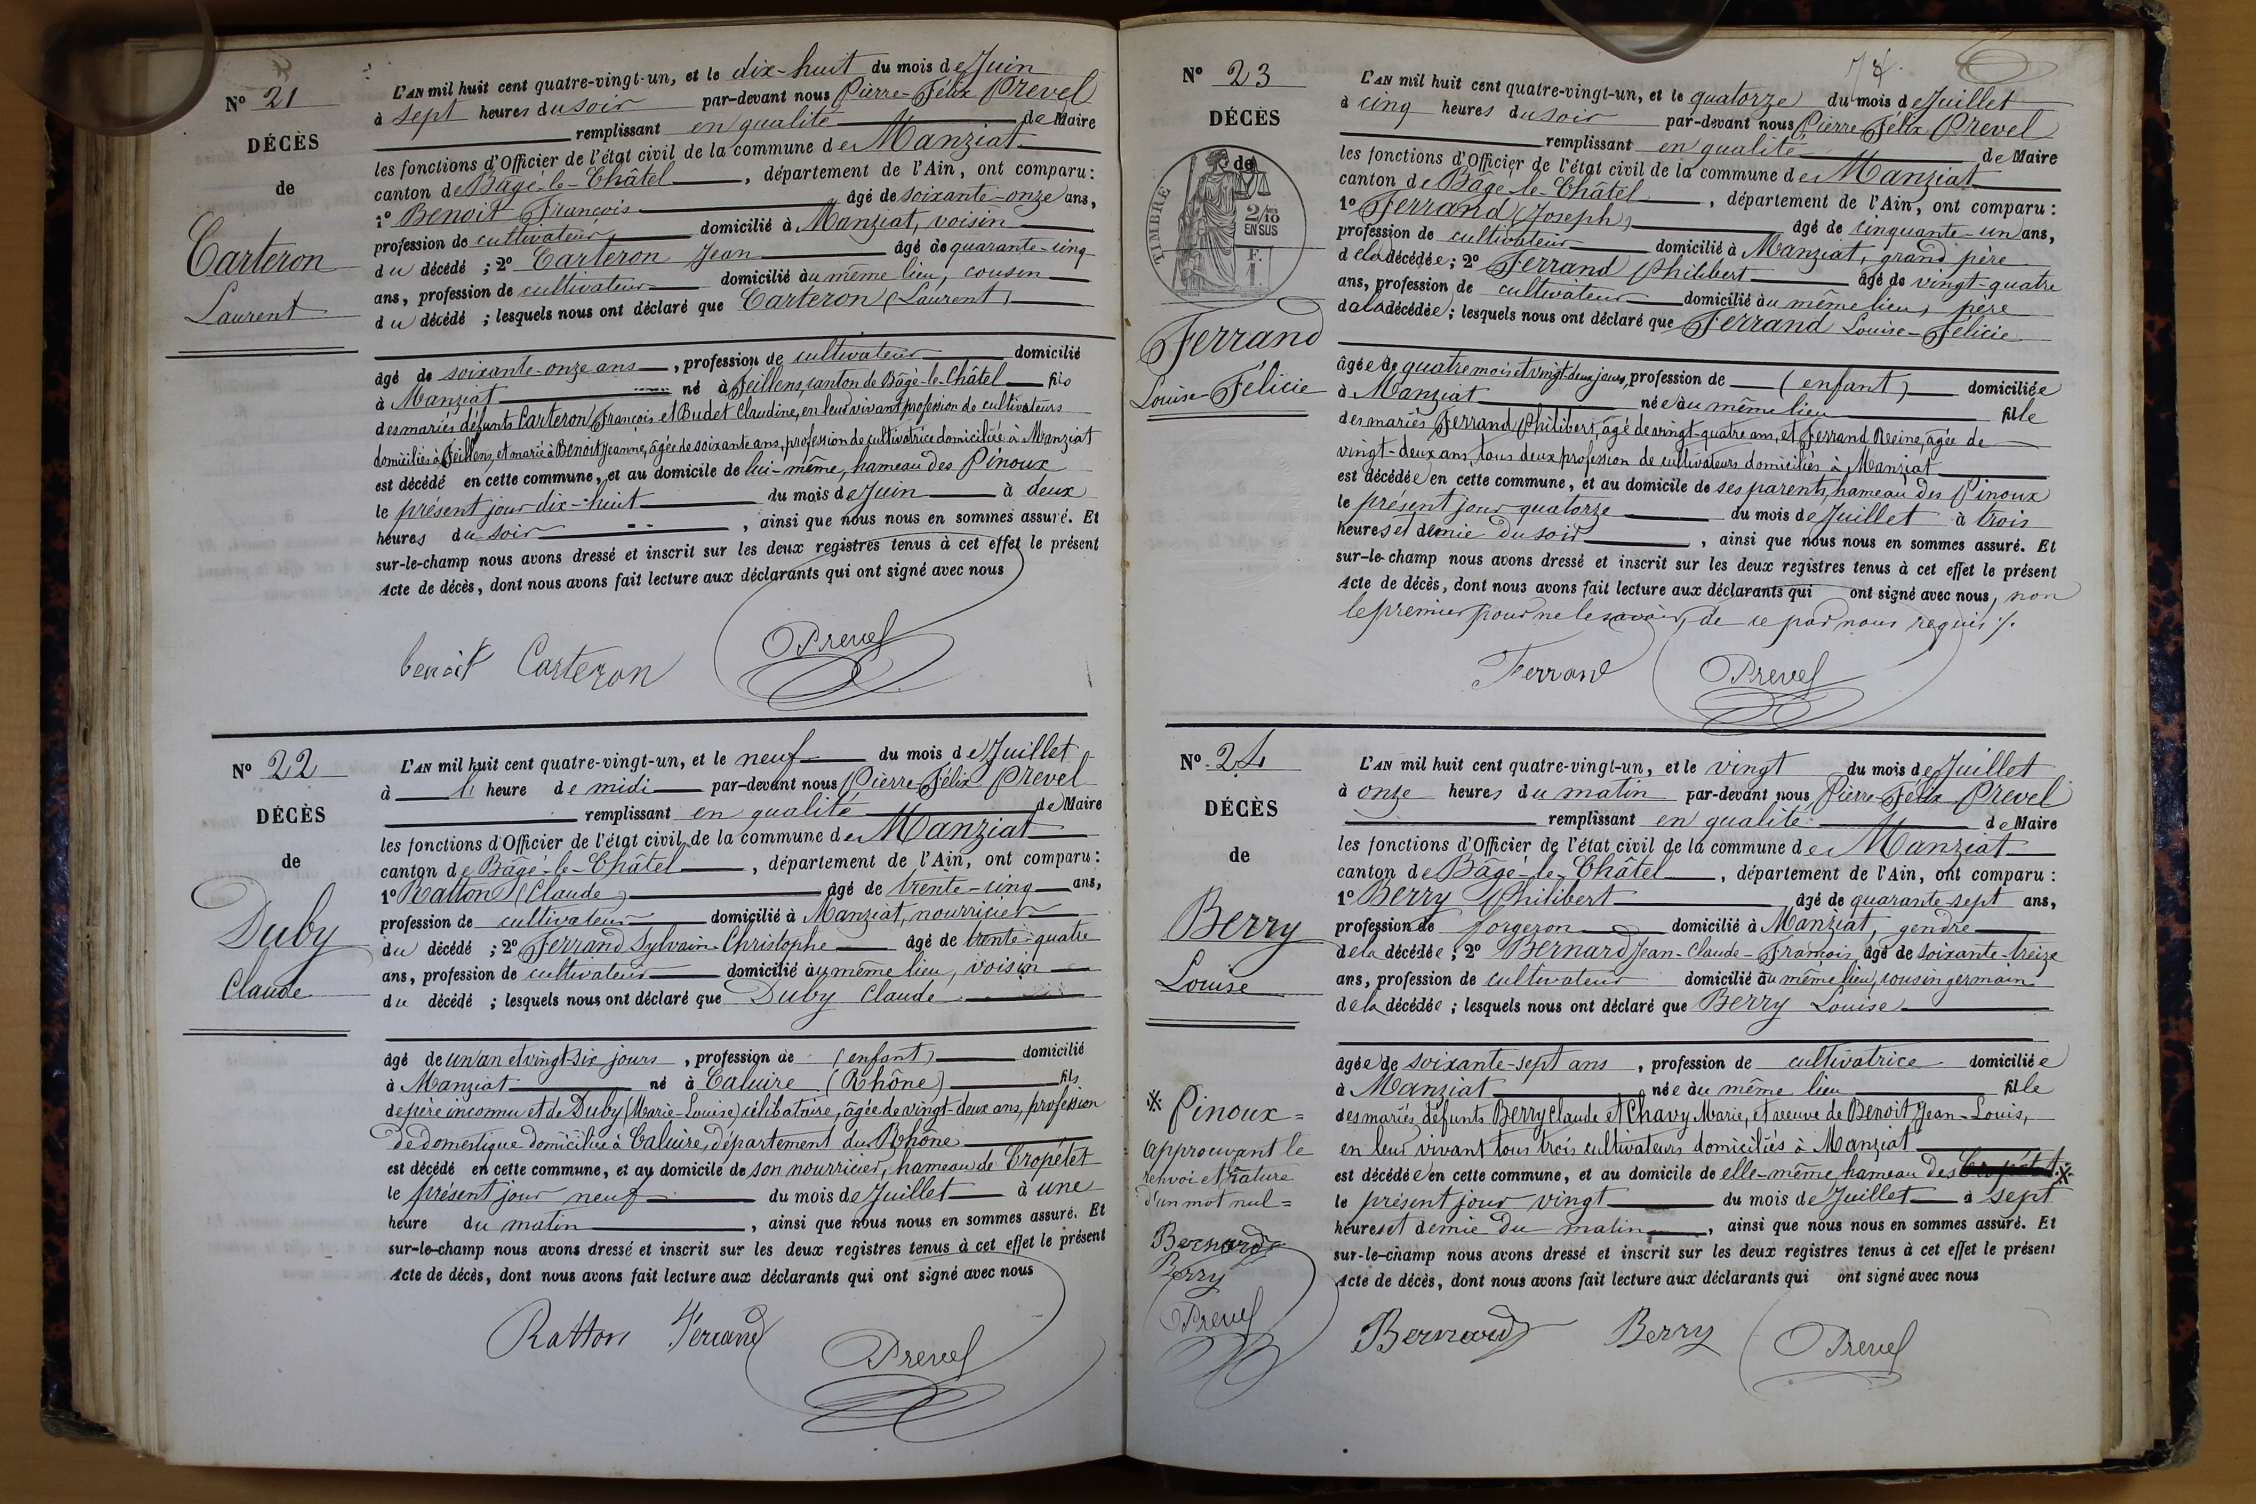 N° 21
DÉCÈS
de
Carteron
Laurent
L'AN mil huit cent quatre-vingt-un, et le dix-huit du mois de Juin
à sept heures du soir par-devant nous Pierre-Félix Prevel
remplissant en qualité de Maire
les fonctions d'Officier de l'état civil de la commune de Manziat
canton de Bâgé-le-Châtel, département de l'Ain, ont comparu:
1° Benoit François âgé de soixante-onze ans,
profession de cultivateur domicilié à Manziat, voisin
du décédé ; 2° Carteron Jean âgé de quarante-cinq
ans, profession de cultivateur domicilié au même lieu, cousin
du décédé ; lesquels nous ont déclaré que Carteron (Laurent)
âgé de soixante-onze ans, profession de cultivateur domicilié
à Manziat né à Feillens, canton de Bâgé-le-Châtel fils
des mariés défunts Carteron François et Budet Claudine, en leur vivant profession de cultivateurs
domiciliés à Feillens, et marié à Benoit Jeanne, âgée de soixante ans, profession de cultivatrice domiciliée à Manziat
est décédé en cette commune, et au domicile de lui-même, hameau des Pinoux
le présent jour dix-huit du mois de Juin à deux
heures du soir, ainsi que nous nous en sommes assuré. Et
sur-le-champ nous avons dressé et inscrit sur les deux registres tenus à cet effet le présent
Acte de décès, dont nous avons fait lecture aux déclarants qui ont signé avec nous
benoit Carteron Prevel
N° 22
DÉCÈS
de
Duby
Claude
L'AN mil huit cent quatre-vingt-un, et le neuf du mois de Juillet
à l' heure de midi par-devant nous Pierre-Félix Prevel
remplissant en qualité de Maire
les fonctions d'Officier de l'état civil de la commune de Manziat
canton de Bâgé-le-Châtel, département de l'Ain, ont comparu:
1° Ratton (Claude) âgé de trente-cinq ans,
profession de cultivateur domicilié à Manziat, nourricier
du décédé ; 2° Ferrand Sylvain-Christophe âgé de trente-quatre
ans, profession de cultivateur domicilié au même lieu, voisin
du décédé ; lesquels nous ont déclaré que Duby Claude
âgé de un an et vingt-six jours, profession de (enfant) domicilié
à Manziat né à Caluire (Rhône) fils
de père inconnu et de Duby (Marie-Louise) célibataire, âgée de vingt-deux ans, profession
de domestique domiciliée à Caluire, département du Rhône
est décédé en cette commune, et au domicile de son nourricier, hameau de Cropétet
le présent jour neuf du mois de Juillet à une
heure du matin, ainsi que nous nous en sommes assuré. Et
sur-le-champ nous avons dressé et inscrit sur les deux registres tenus à cet effet le présent
Acte de décès, dont nous avons fait lecture aux déclarants qui ont signé avec nous
Ratton Ferrand Prevel
N° 23
DÉCÈS
de
TIMBRE
2/10
EN SUS
F.
1.
Ferrand
Louise-Félicie
L'AN mil huit cent quatre-vingt-un, et le quatorze du mois de Juillet
à cinq heures du soir par-devant nous Pierre-Félix Prevel
remplissant en qualité de Maire
les fonctions d'Officier de l'état civil de la commune de Manziat
canton de Bâgé-le-Châtel, département de l'Ain, ont comparu :
1° Ferrand (Joseph) âgé de cinquante-un ans,
profession de cultivateur domicilié à Manziat, grand père
de la décédée ; 2° Ferrand Philibert âgé de vingt-quatre
ans, profession de cultivateur domicilié au même lieu, père
de la décédée ; lesquels nous ont déclaré que Ferrand Louise-Félicie
âgée de quatre mois et vingt-deux jours, profession de (enfant) domiciliée
à Manziat née au même lieu fille
des mariés Ferrand Philibert, âgé de vingt-quatre ans, et Ferrand Reine, âgée de
vingt-deux ans, tous deux profession de cultivateurs domiciliés à Manziat
est décédée en cette commune, et au domicile de ses parents, hameau des Pinoux
le présent jour quatorze du mois de Juillet à trois
heures et demie du soir, ainsi que nous nous en sommes assuré. Et
sur-le-champ nous avons dressé et inscrit sur les deux registres tenus à cet effet le présent
Acte de décès, dont nous avons fait lecture aux déclarants qui ont signé avec nous, non
le premier pour ne le savoir, de ce par nous requis ./.
Ferrand Prevel
N° 24
DÉCÈS
de
Berry
Louise
※ Pinoux =
approuvant le
renvoi et rature
d'un mot nul =
Bernard
Berry
Prevel
L'AN mil huit cent quatre-vingt-un, et le vingt du mois de Juillet
à onze heures du matin par-devant nous Pierre-Félix Prevel
remplissant en qualité de Maire
les fonctions d'Officier de l'état civil de la commune de Manziat
canton de Bâgé-le-Châtel, département de l'Ain, ont comparu :
1° Berry Philibert âgé de quarante-sept ans,
profession de forgeron domicilié à Manziat, gendre
de la décédée ; 2° Bernard Jean-Claude-François, âgé de soixante-treize
ans, profession de cultivateur domicilié au même lieu, cousin germain
de la décédée ; lesquels nous ont déclaré que Berry Louise
âgée de soixante-sept ans, profession de cultivatrice domiciliée
à Manziat née au même lieu fille
des mariés défunts Berry Claude et Chavy Marie, et veuve de Benoit Jean-Louis,
en leur vivant tous trois cultivateurs domiciliés à Manziat
est décédée en cette commune, et au domicile de elle-même, hameau des ※
le présent jour vingt du mois de Juillet à sept
heures et demie du matin, ainsi que nous nous en sommes assuré. Et
sur-le-champ nous avons dressé et inscrit sur les deux registres tenus à cet effet le présent
Acte de décès, dont nous avons fait lecture aux déclarants qui ont signé avec nous
Bernard Berry Prevel